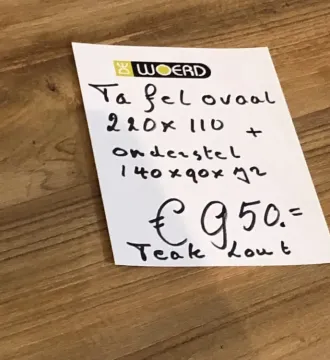 WOERD
Tafel ovaal
220x110 +
onderstel
140x90x72
€ 950.=
Teak hout